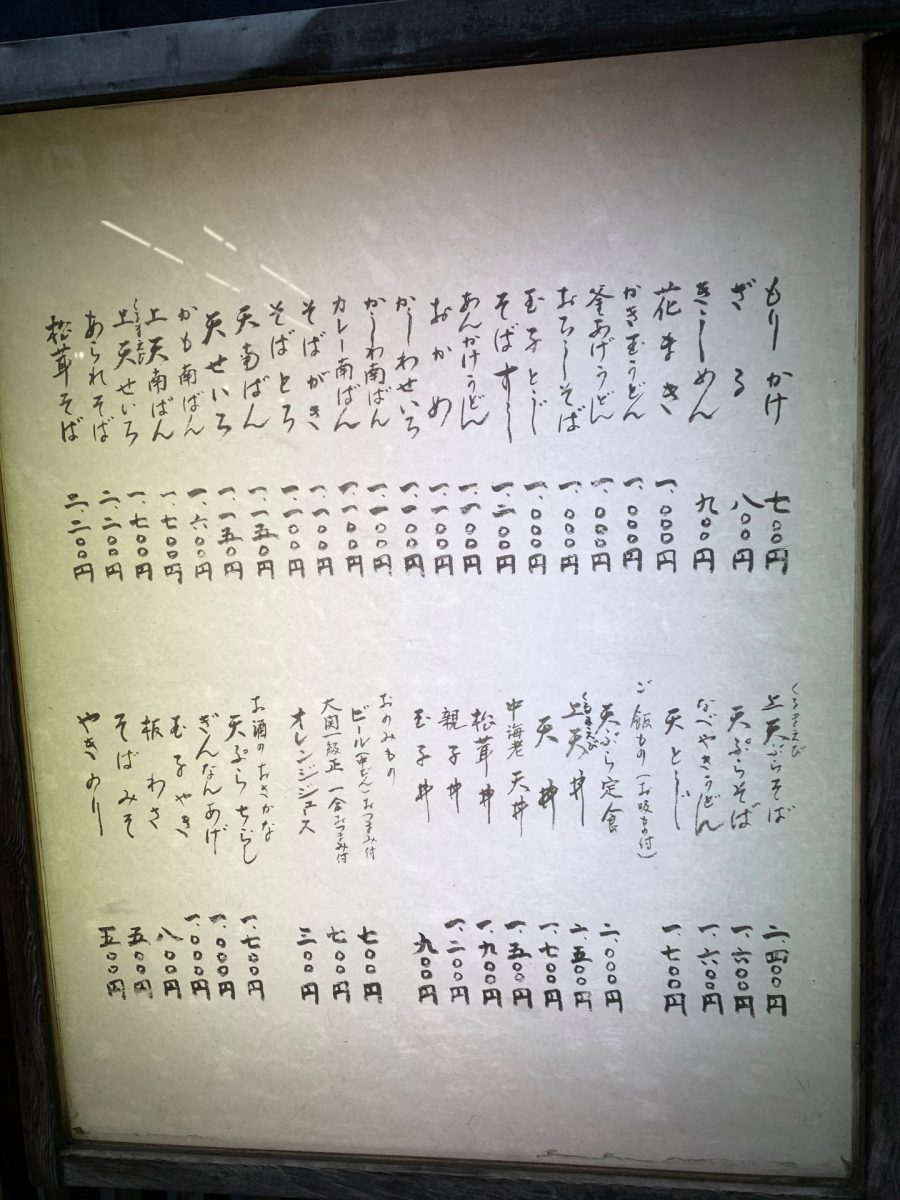 もり かけ 七〇〇円
ざる 八〇〇円
きしめん 九〇〇円
花まき 一、〇〇〇円
かき玉うどん 一、〇〇〇円
釜あげうどん 一、〇〇〇円
おろしそば 一、〇〇〇円
玉子とじ 一、〇〇〇円
そばすし 一、二〇〇円
あんかけうどん 一、一〇〇円
おかめ 一、一〇〇円
かしわせいろ 一、一〇〇円
かしわ南ばん 一、一〇〇円
カレー南ばん 一、一〇〇円
そばがき 一、一〇〇円
そばとろ 一、一〇〇円
天南ばん 一、一五〇円
天せいろ 一、一五〇円
かも南ばん 一、六〇〇円
上天南ばん 一、七〇〇円
くるまえび
上天せいろ 一、七〇〇円
あられそば 二、二〇〇円
松茸そば 二、二〇〇円
くるまえび
上天ぷらそば 二、四〇〇円
天ぷらそば 一、六〇〇円
なべやきうどん 一、六〇〇円
天とじ 一、七〇〇円
ご飯もの(お吸もの付)
天ぷら定食 二、〇〇〇円
くるまえび
上天丼 二、五〇〇円
天丼 一、七〇〇円
中海老天丼 一、五〇〇円
松茸丼 一、九〇〇円
親子丼 一、二〇〇円
玉子丼 九〇〇円
おのみもの
ビール(中びん)おつまみ付 七〇〇円
大関一級正 一合おつまみ付 七〇〇円
オレンジジュース 三〇〇円
お酒のおさかな
天ぷらちらし 一、七〇〇円
ぎんなんあげ 一、〇〇〇円
玉子やき 一、〇〇〇円
板わさ 八〇〇円
そばみそ 五〇〇円
やきのり 五〇〇円